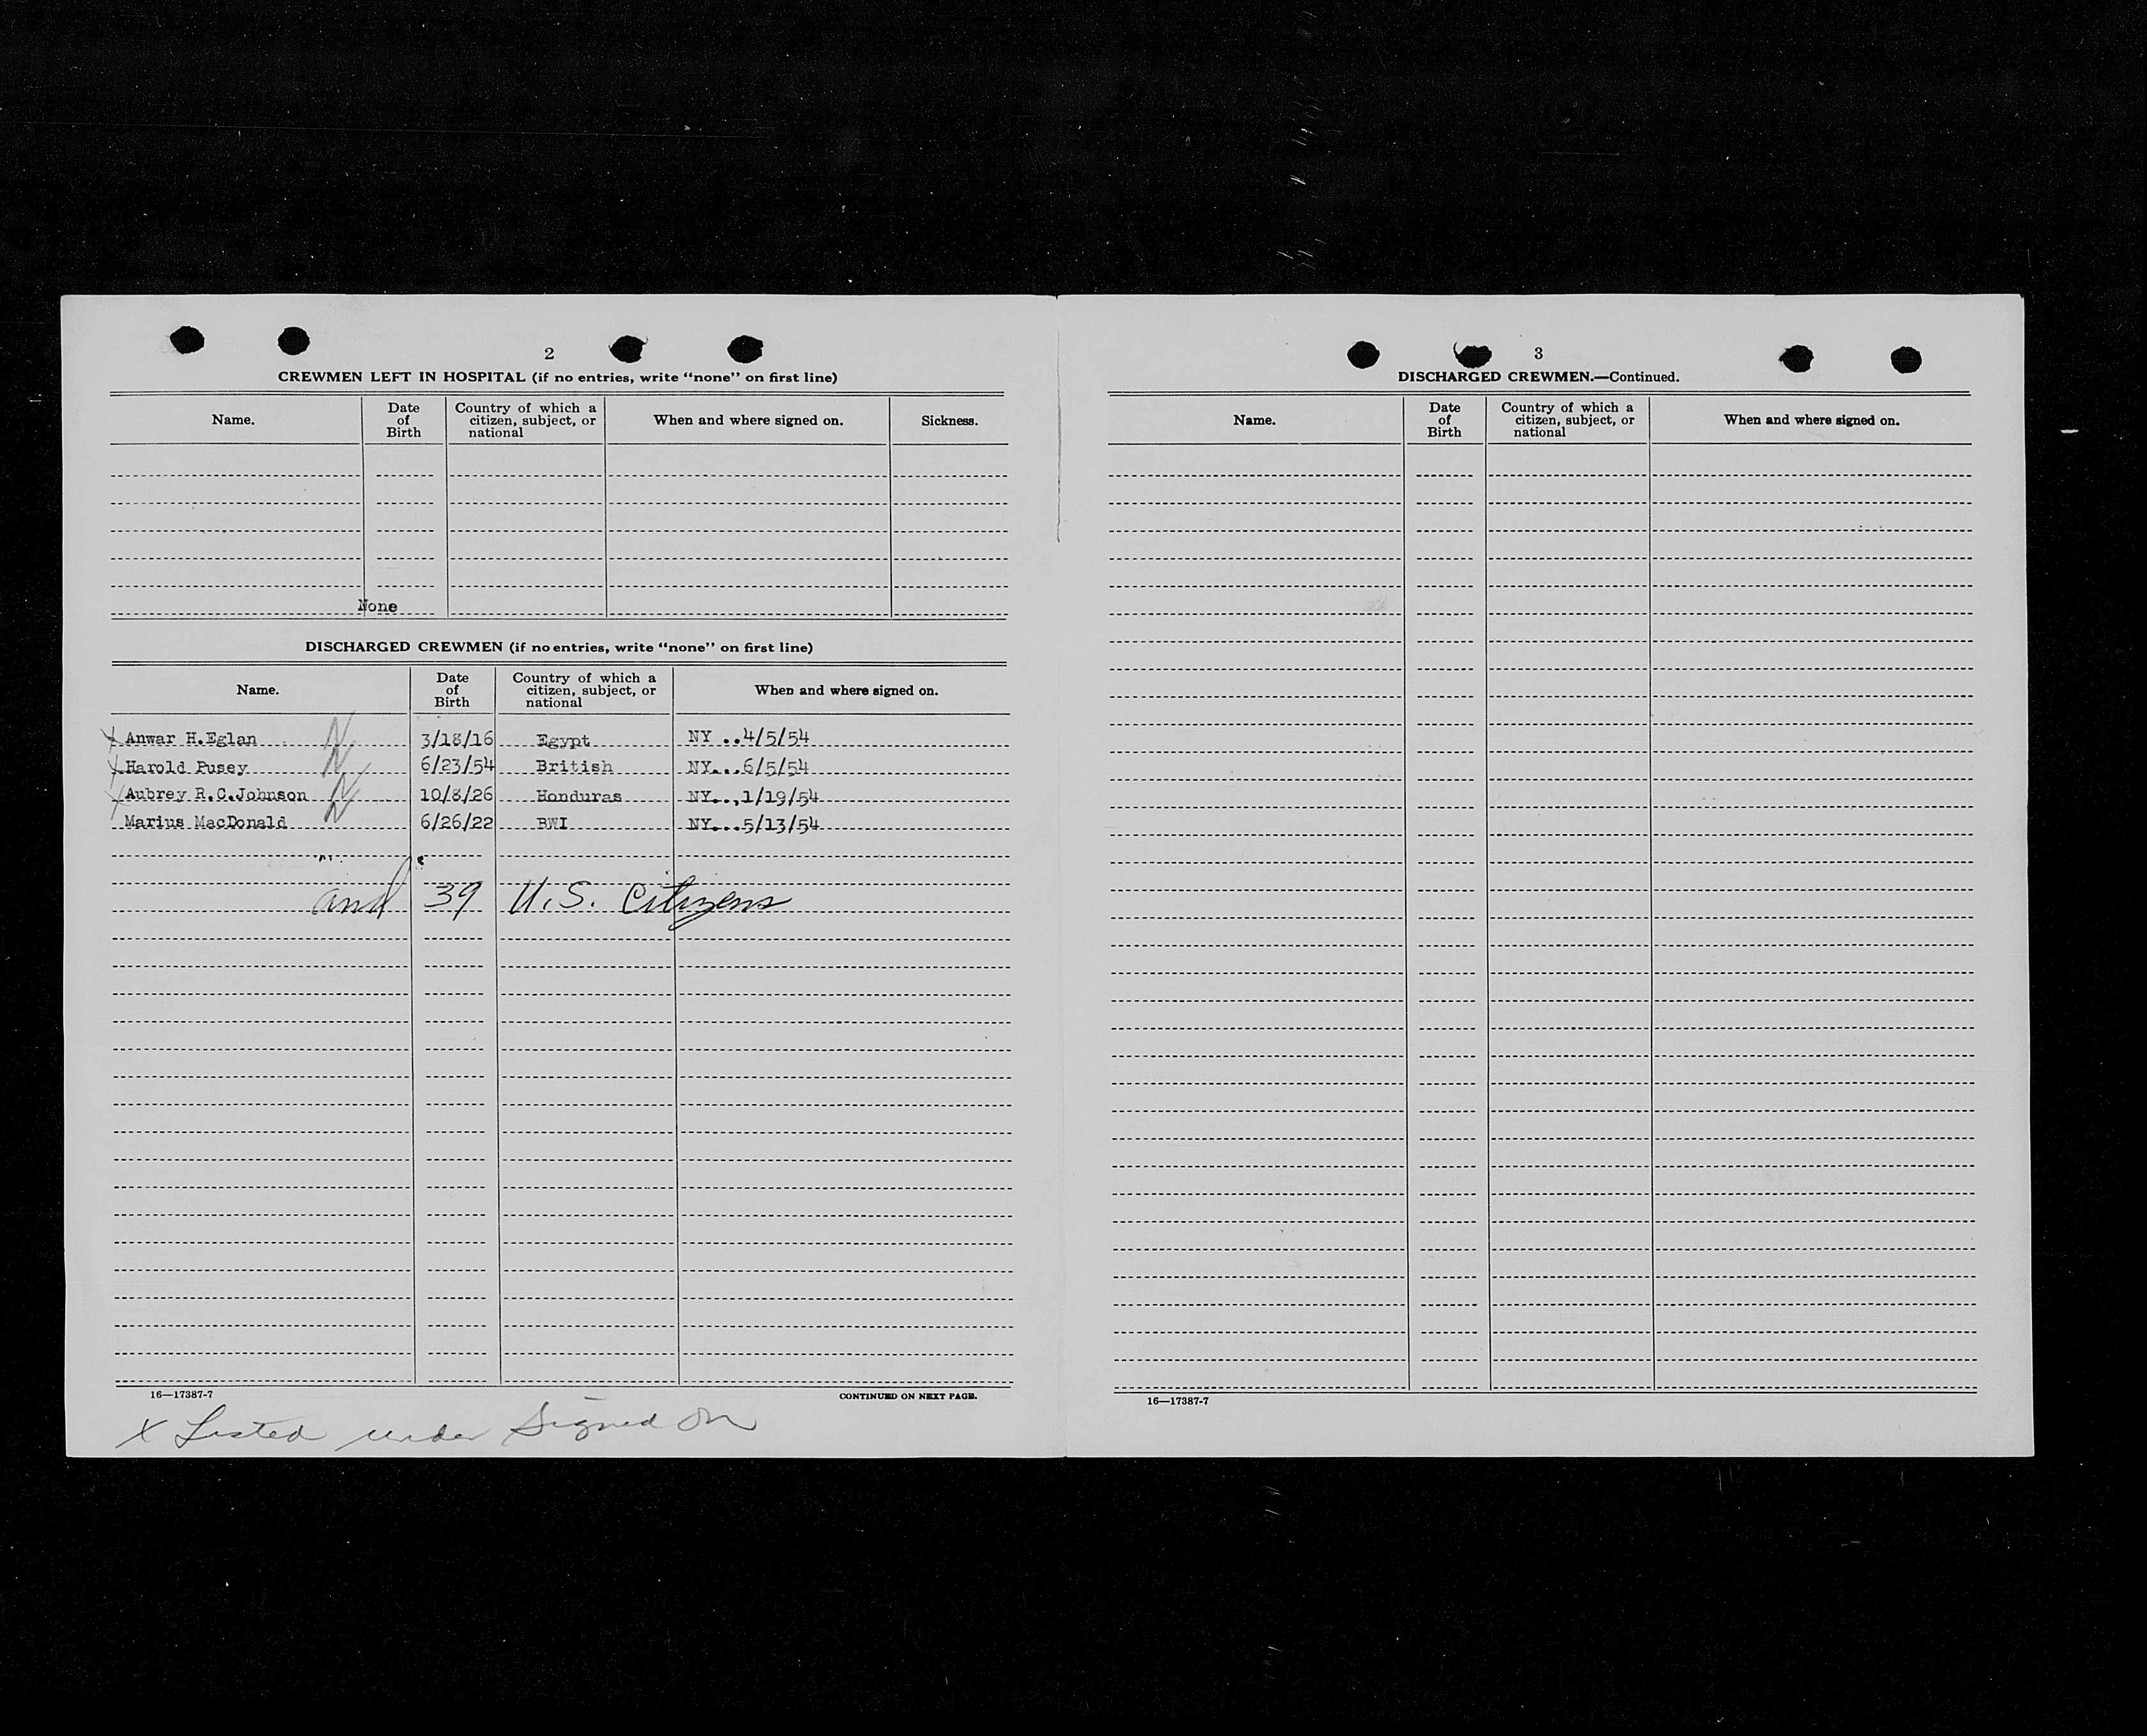 2
CREWMEN LEFT IN HOSPITAL (if no entries, write “none” on first line)
Name. Date of Birth Country of which a citizen, subject, or national When and where signed on. Sickness.
None
DISCHARGED CREWMEN (if no entries, write “none” on first line)
Name. Date of Birth Country of which a citizen, subject, or national When and where signed on.
x Anwar H.Eglan N 3/18/16 Egypt NY ..4/5/54
x Harold Pusey 6/23/54 British NY...6/5/54
x Aubrey R.C.Johnson N 10/8/26 Honduras NY..,1/19/54
Marius MacDonald 6/26/22 BWI NY...5/13/54
and 39 U.S. Citizens
16—17387-7 CONTINUED ON NEXT PAGE.
x Listed under Signed on
3
DISCHARGED CREWMEN.—Continued.
Name. Date of Birth Country of which a citizen, subject, or national When and where signed on.
16—17387-7